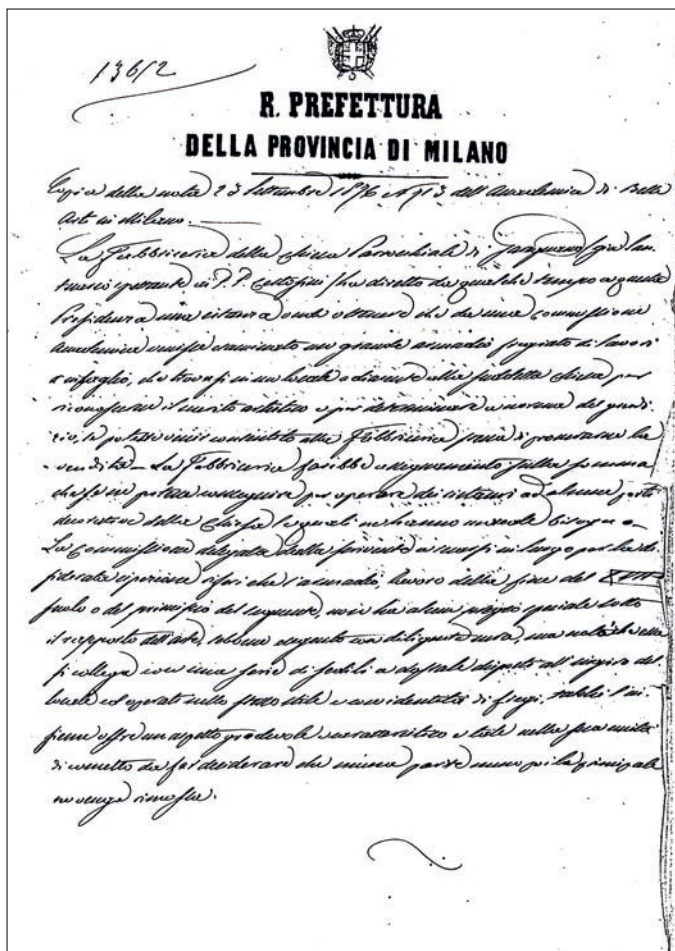 13612
R. PREFETTURA
DELLA PROVINCIA DI MILANO
Copia della nota 23 Settembre 1876 N 913 dell'Accademia di Belle
Arti in Milano.
La Fabbriceria della Chiesa Parrocchiale di Garegnano (già San-
tuario spettante ai P.P. Certosini) ha diretto da qualche tempo a questa
Presidenza una istanza onde ottenere che da una commissione
Accademica venisse esaminato un grande armadio fregiato di lavori
a intaglio, che trovasi in un locale adiacente alla suddetta chiesa per
riconoscerne il merito artistico e per determinare a norma del giudi-
zio, se potesse venir consentito alla Fabbriceria stessa di procurarne la
vendita - La Fabbriceria farebbe assegnamento sulla somma
che se ne potesse conseguire per operare dei restauri ad alcune parti
decorative della Chiesa le quali ne hanno bisogno -
La commissione delegata dalla scrivente a recarsi in luogo per la de-
siderata ispezione riferì che l'armadio, lavoro della fine del XVII
secolo o del principio del seguente, non ha alcun pregio speciale sotto
il rapporto dell'arte, sebbene eseguito con diligente cura, ma notò che esso
si collega con una serie di sedili a dossale disposti all'ingiro del
locale ed operati nello stesso stile e con identità di fregi, talchè l'in-
sieme offre un aspetto gradevole e caratteristico e tale nella sua unità
di concetto da far desiderare che niuna parte meno poi la principale
ne venga rimossa.